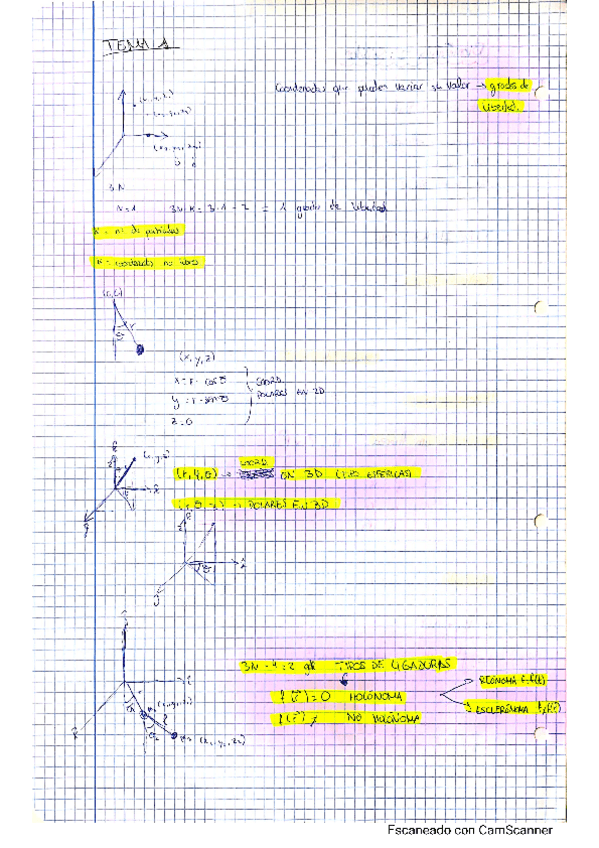 TEMA 1
Coordenadas que pueden variar su valor → grados de
libertad.
3N
N=1 3N-K = 3·1-2 = 1 grado de libertad
= nº de partículas
K = coordenadas no libres
(0,0)
(x, y, z)
x = r · cosθ
y = r · senθ
z = 0
COORD.
POLARES EN 2D
(r, φ, θ) → COORD EN 3D (LAS ESFÉRICAS)
→ POLARES EN 3D
3N - 4 = 2 gl TIPOS DE LIGADURAS
f(r) = 0 HOLÓNOMA
f(r) ≠ NO HOLÓNOMA
REÓNOMA
ESCLERÓNOMA
Escaneado con CamScanner